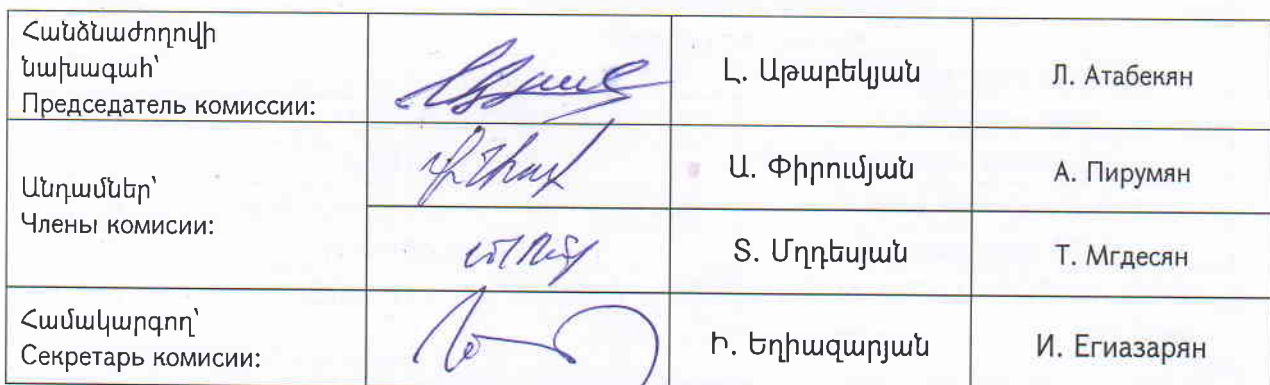 Հանձնաժողովի
նախագահ՝
Председатель комиссии:
Լ. Աթաբեկյան
Л. Атабекян
Անդամներ՝
Члены комисии:
Ա. Փիրումյան
А. Пирумян
Տ. Մղդեսյան
Т. Мгдесян
Համակարգող՝
Секретарь комисии:
Ի. Եղիազարյան
И. Егиазарян